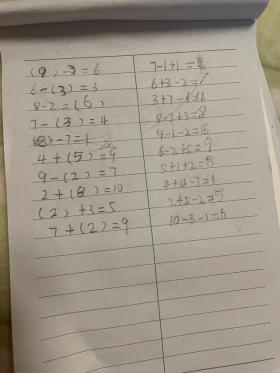 (9) -3=6
6-(3)=3
8-2=(6)
7-(3)=4
(8)-7=1
4+(5)=9
9-(2)=7
2+(8)=10
(2)+3=5
7+(2)=9
7-1+1=
6+3-2=7
8-3+3=8
9-1-2=6
6-2+5=9
5+1+2=8
4+4-7=1
2+5-2=5
10-3-1=6